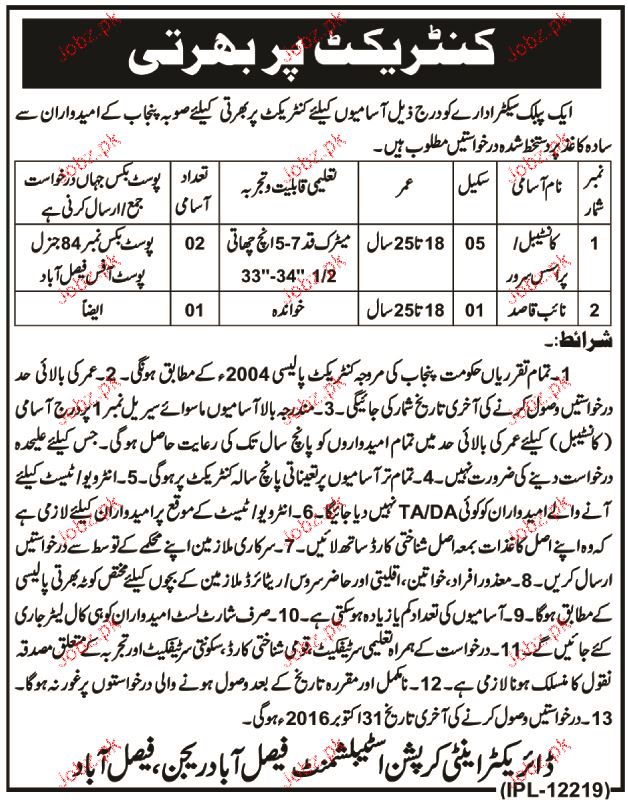 کنٹریکٹ پر بھرتی
ایک پبلک سیکٹر ادارے کو درج ذیل آسامیوں کیلئے کنٹریکٹ پر بھرتی کیلئے صوبہ پنجاب کے امیدواران سے
سادہ کاغذ پر دستخط شدہ درخواستیں مطلوب ہیں۔
نمبر شمار	نام آسامی	سکیل	عمر	تعلیمی قابلیت و تجربہ	تعداد آسامی	پوسٹ بکس جہاں درخواست جمع/ارسال کرنی ہے
1	کانسٹیبل/ پراسس سرور	05	18 تا 25 سال	میٹرک قد 7-5 انچ چھاتی 33"-34" 1/2	02	پوسٹ بکس نمبر 84 جنرل پوسٹ آفس فیصل آباد
2	نائب قاصد	01	18 تا 25 سال	خواندہ	01	ایضاً
شرائط:۔
1۔ تمام تقرریاں حکومت پنجاب کی مروجہ کنٹریکٹ پالیسی 2004ء کے مطابق ہونگی۔ 2۔ عمر کی بالائی حد
درخواستیں وصول کرنے کی آخری تاریخ شمار کی جائیگی۔ 3۔ مندرجہ بالا آسامیوں ماسوائے سیریل نمبر 1 پر درج آسامی
(کانسٹیبل) کیلئے عمر کی بالائی حد میں تمام امیدواروں کو پانچ سال تک کی رعایت حاصل ہوگی۔ جس کیلئے علیحدہ
درخواست دینے کی ضرورت نہیں۔ 4۔ تمام تر آسامیوں پر تعیناتی پانچ سالہ کنٹریکٹ پر ہوگی۔ 5۔ انٹرویو/ٹیسٹ کیلئے
آنے والے امیدواران کو کوئی TA/DA نہیں دیا جائیگا۔ 6۔ انٹرویو/ٹیسٹ کے موقع پر امیدواران کیلئے لازمی ہے
کہ وہ اپنے اصل کاغذات بمعہ اصل شناختی کارڈ ساتھ لائیں۔ 7۔ سرکاری ملازمین اپنے محکمے کے توسط سے درخواستیں
ارسال کریں۔ 8۔ معذور افراد، خواتین، اقلیتی اور حاضر سروس/ریٹائرڈ ملازمین کے بچوں کیلئے مختص کوٹہ بھرتی پالیسی
کے مطابق ہوگا۔ 9۔ آسامیوں کی تعداد کم یا زیادہ ہوسکتی ہے۔ 10۔ صرف شارٹ لسٹ امیدواران کو ہی کال لیٹر جاری
کئے جائیں گے۔ 11۔ درخواست کے ہمراہ تعلیمی سرٹیفکیٹ، قومی شناختی کارڈ، سکونتی سرٹیفکیٹ اور تجربہ کے متعلق مصدقہ
نقول کا منسلک ہونا لازمی ہے۔ 12۔ نامکمل اور مقررہ تاریخ کے بعد وصول ہونے والی درخواستوں پر غور نہ ہوگا۔
13۔ درخواستیں وصول کرنے کی آخری تاریخ 31 اکتوبر 2016ء ہوگی۔
ڈائریکٹر اینٹی کرپشن اسٹیبلشمنٹ فیصل آباد ریجن، فیصل آباد
(IPL-12219)
Jobz.pk